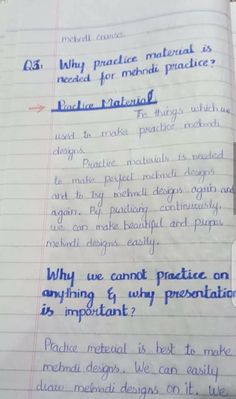 mehndi course
Q3: Why practice material is
needed for mehndi practice?
Practice Material
The things which are
used to make practice mehndi
designs.
Practice materials is needed
to make perfect mehndi designs
and to try mehndi designs again and
again. By practicing continuously,
we can make beautiful and proper
mehndi designs easily.
Why we cannot practice on
anything & why presentation
is important?
Practice meterial is best to make
mehndi designs. We can easily
draw mehndi designs on it. We